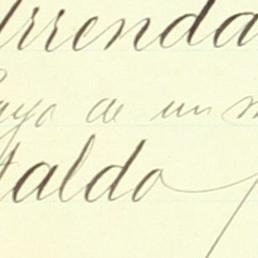 Arrenda
Pago de un m
taldo